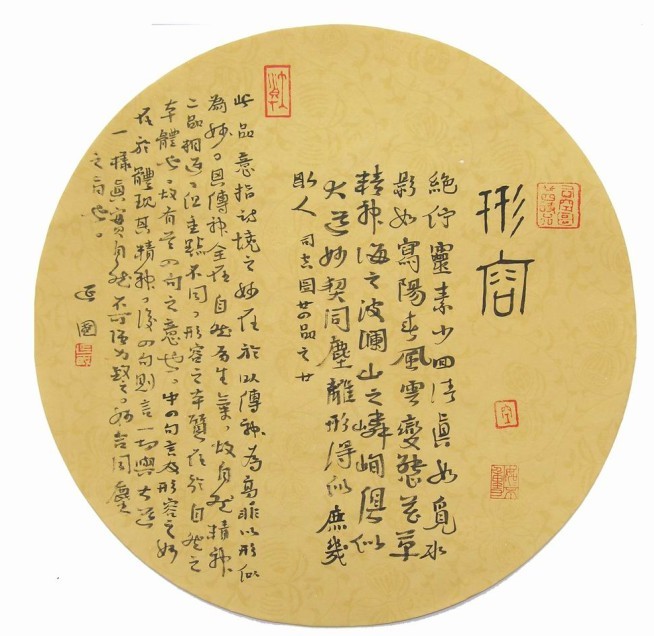 形容
絶佇靈素少回清真如覓水
影如寫陽春風雲變態花草
精神海之波瀾山之嶙峋俱似
大道妙契同塵離形得似庶幾
斯人 司空圖廿四品之廿
此品意指詩境之妙在於以傳神為高非以形似
為妙。其傳神全在自然有生氣，故與自然精神
二品相近，但重點不同，形容之本質在於自然之
本體也。故有首四句之意也。中四句言及形容之妙
在於體現其精神。後四句則言一切與大道
一樣真實自然不可強為同塵
之句也。